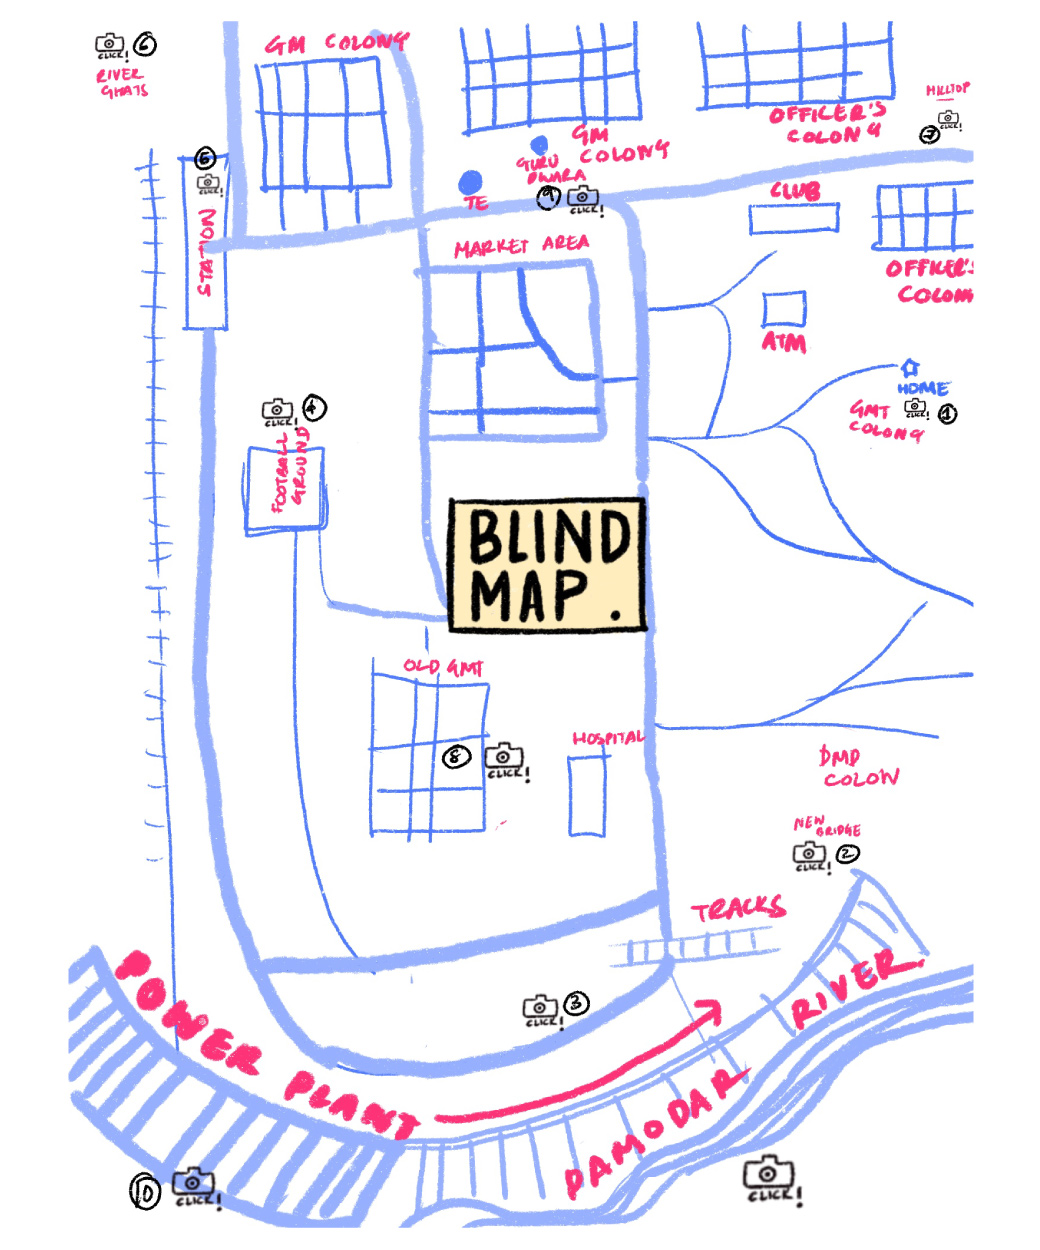 6
CLICK!
RIVER
GHATS
GM COLONY
GM
COLONY
OFFICER'S
COLONY
HILLTOP
CLICK!
7
5
CLICK!
STATION
GURU
DWARA
TE
9
CLICK!
CLUB
MARKET AREA
OFFICER'S
COLON
ATM
HOME
GMT
COLONY
CLICK!
1
4
CLICK!
FOOTBALL
GROUND
BLIND
MAP.
OLD GMT
8
CLICK!
HOSPITAL
DMD
COLON
NEW
BRIDGE
CLICK!
2
TRACKS
POWER PLANT
3
CLICK!
DAMODAR RIVER.
10
CLICK!
CLICK!